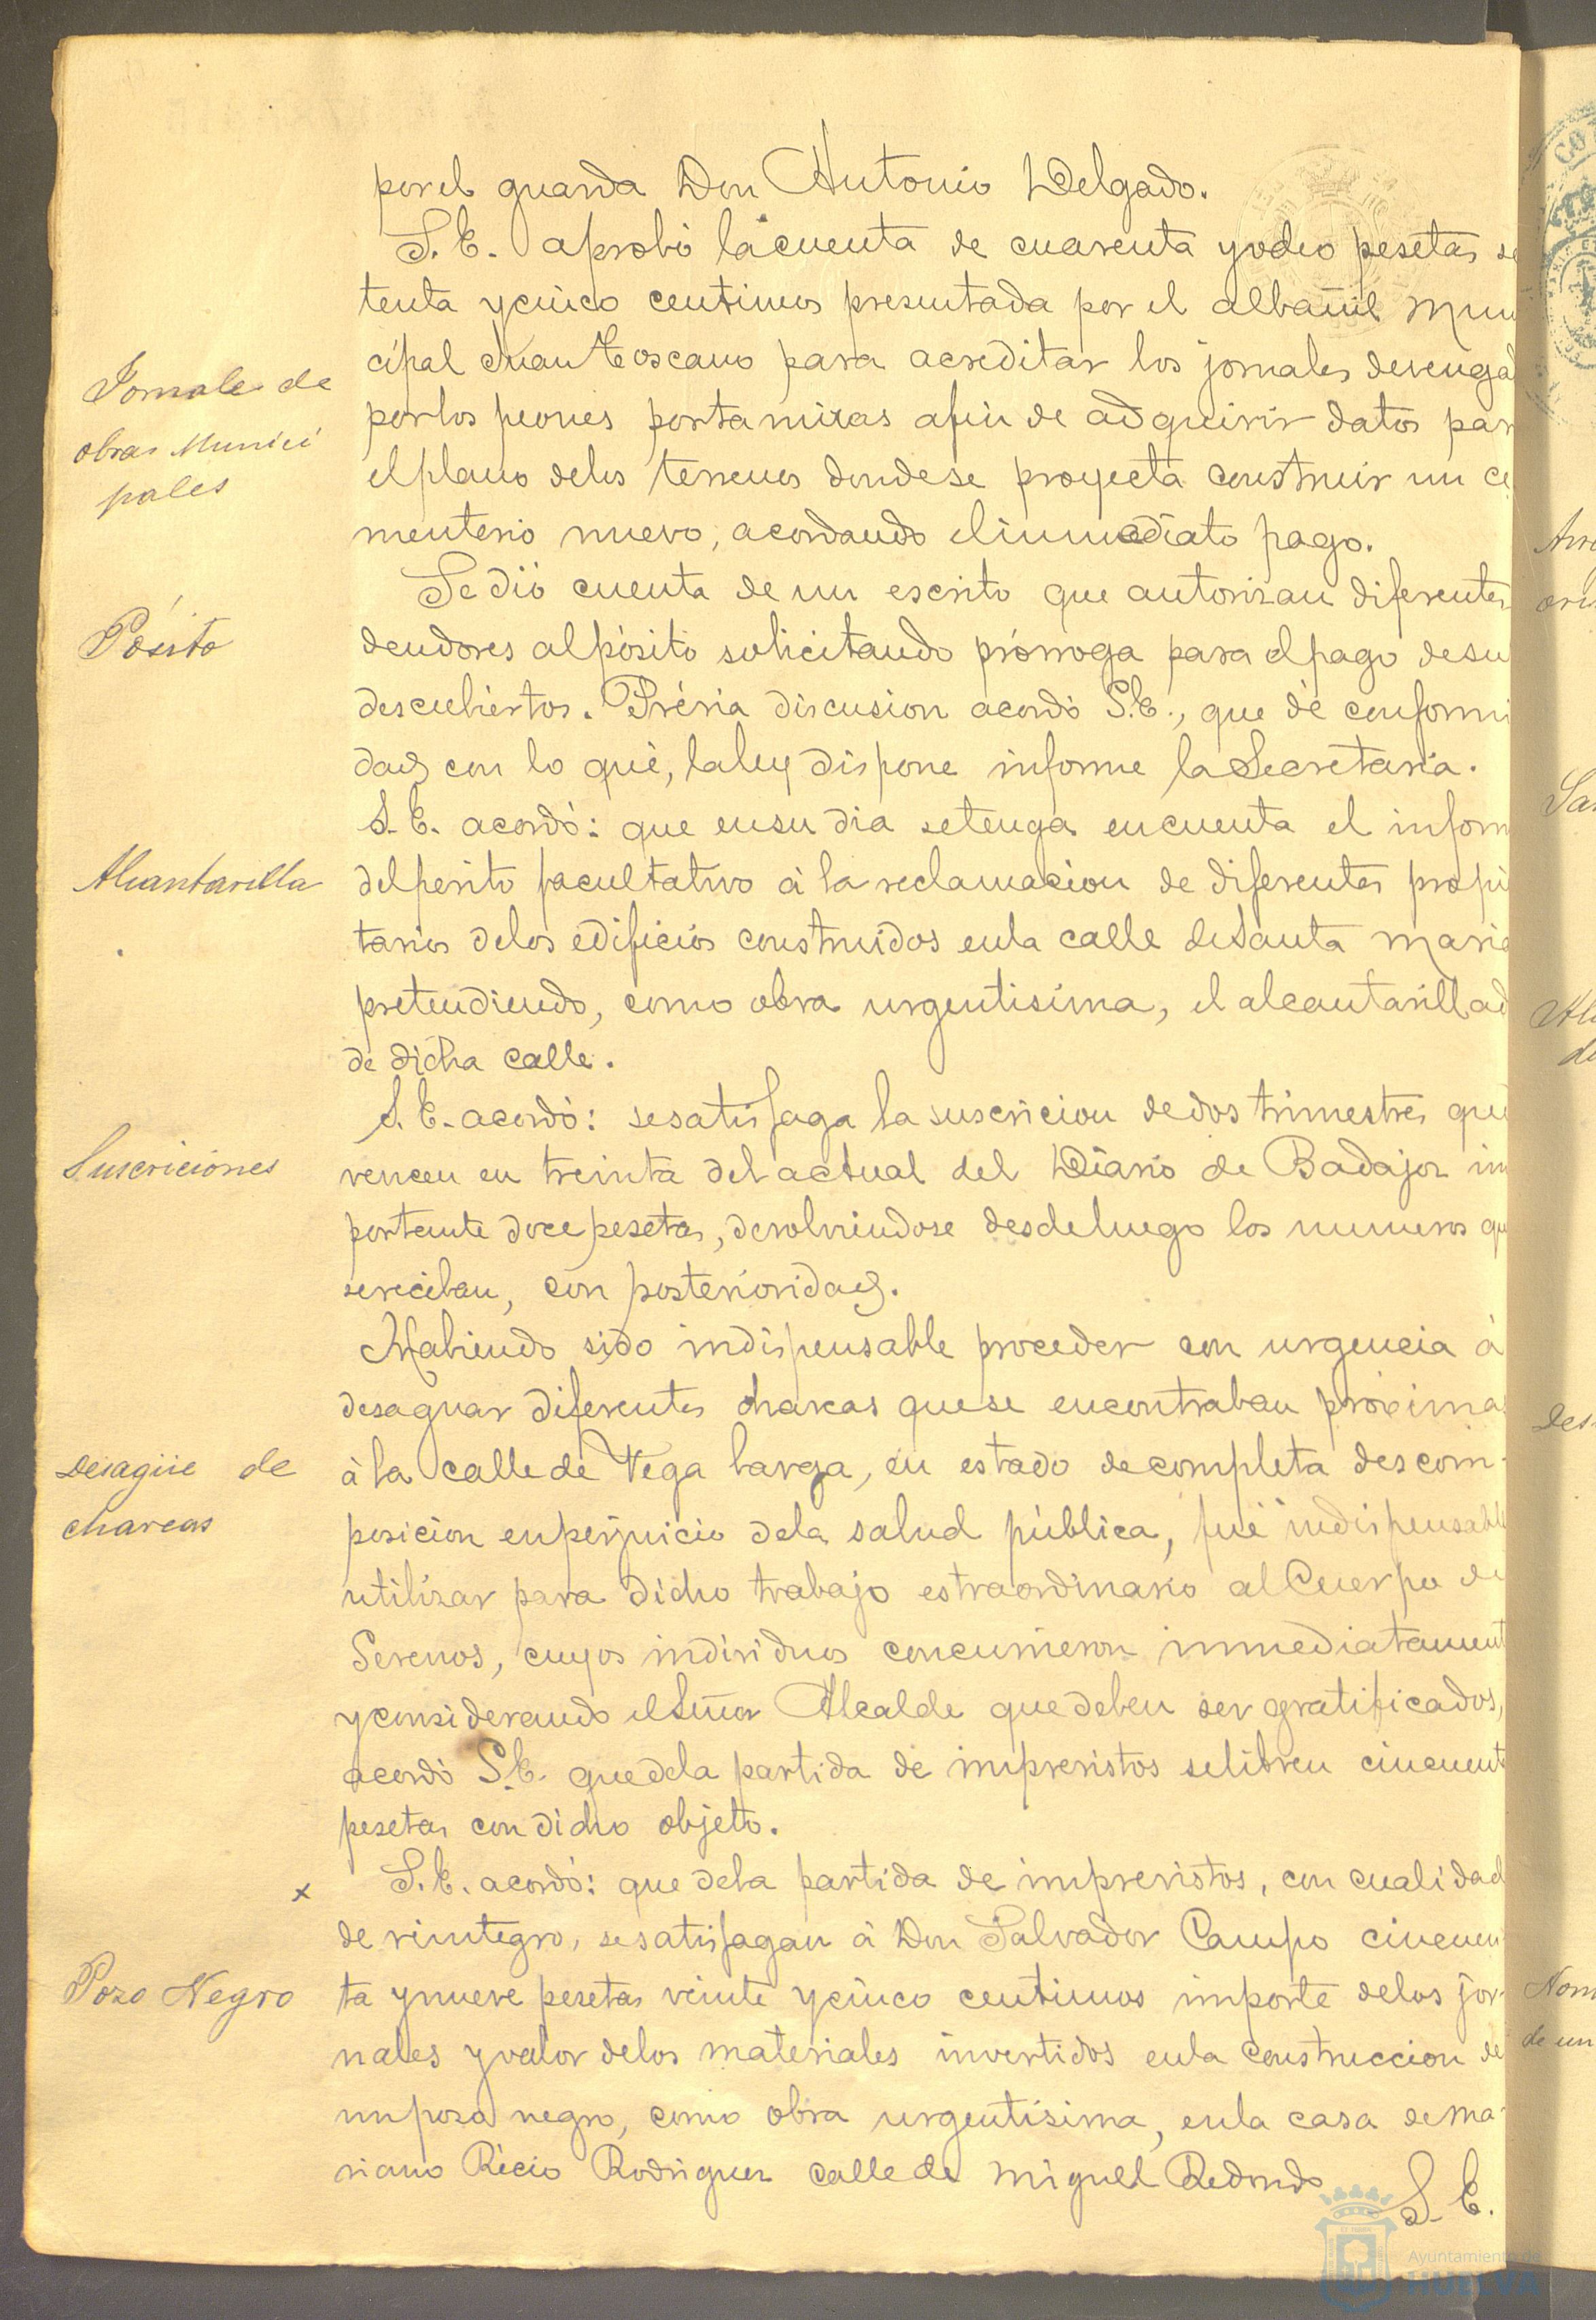 por el guarda Don Antonio Delgado.
S. E. aprobó la cuenta de cuarenta y ocho pesetas se
tenta y cinco centimos presentada por el albañil Muni
Jornales de
obras Munici
pales
cipal Juan Toscano para acreditar los jornales devengad
por los peones portamiras afin de adquirir datos par
el plano de los terrenos donde se proyecta construir un ce
menterio nuevo, acordando el inmediato pago.
Se dió cuenta de un escrito que autorizan diferentes
Pósito
deudores al pósito solicitando prórroga para el pago de su
descubiertos. Prévia discusion acordó S.E., que de conformi
dad con lo que, la ley dispone informe la Secretaria.
S. E. acordó: que en su dia se tenga en cuenta el inform
Alcantarilla
del perito facultativo á la reclamacion de diferentes propie
tarios de los edificios construidos en la calle de Santa Maria
pretendiendo, como obra urgentisima, el alcantarillad
de dicha calle.
S. E. acordó: se satisfaga la suscricion de dos trimestres que
Suscriciones
vencen en treinta del actual del Diario de Badajoz im
portante doce pesetas, devolviendose desde luego los numeros que
se reciban, con posterioridad.
Habiendo sido indispensable proceder con urgencia á
desaguar diferentes charcas que se encontraban próximas
Desagüe de
charcas
á la calle de Vega larga, en estado de completa descom-
posicion en perjuicio de la salud pública, fué indispensable
utilizar para dicho trabajo estraordinario al Cuerpo de
Serenos, cuyos individuos concurrieron inmediatament
y considerando el Señor Alcalde que deben ser gratificados,
acordó S.E. que de la partida de imprevistos se libren cincuenta
pesetas con dicho objeto.
x S. E. acordó: que de la partida de imprevistos, con cualidad
de reintegro, se satisfagan á Don Salvador Campo cincuen
Pozo Negro
ta y nueve pesetas veinte y cinco centimos importe de los jor-
nales y valor de los materiales invertidos en la construccion de
un pozo negro, como obra urgentísima, en la casa de Ma-
riano Récio Rodriguez calle de Miguel Redondo
S. E.
Ayuntamiento de
HUELVA